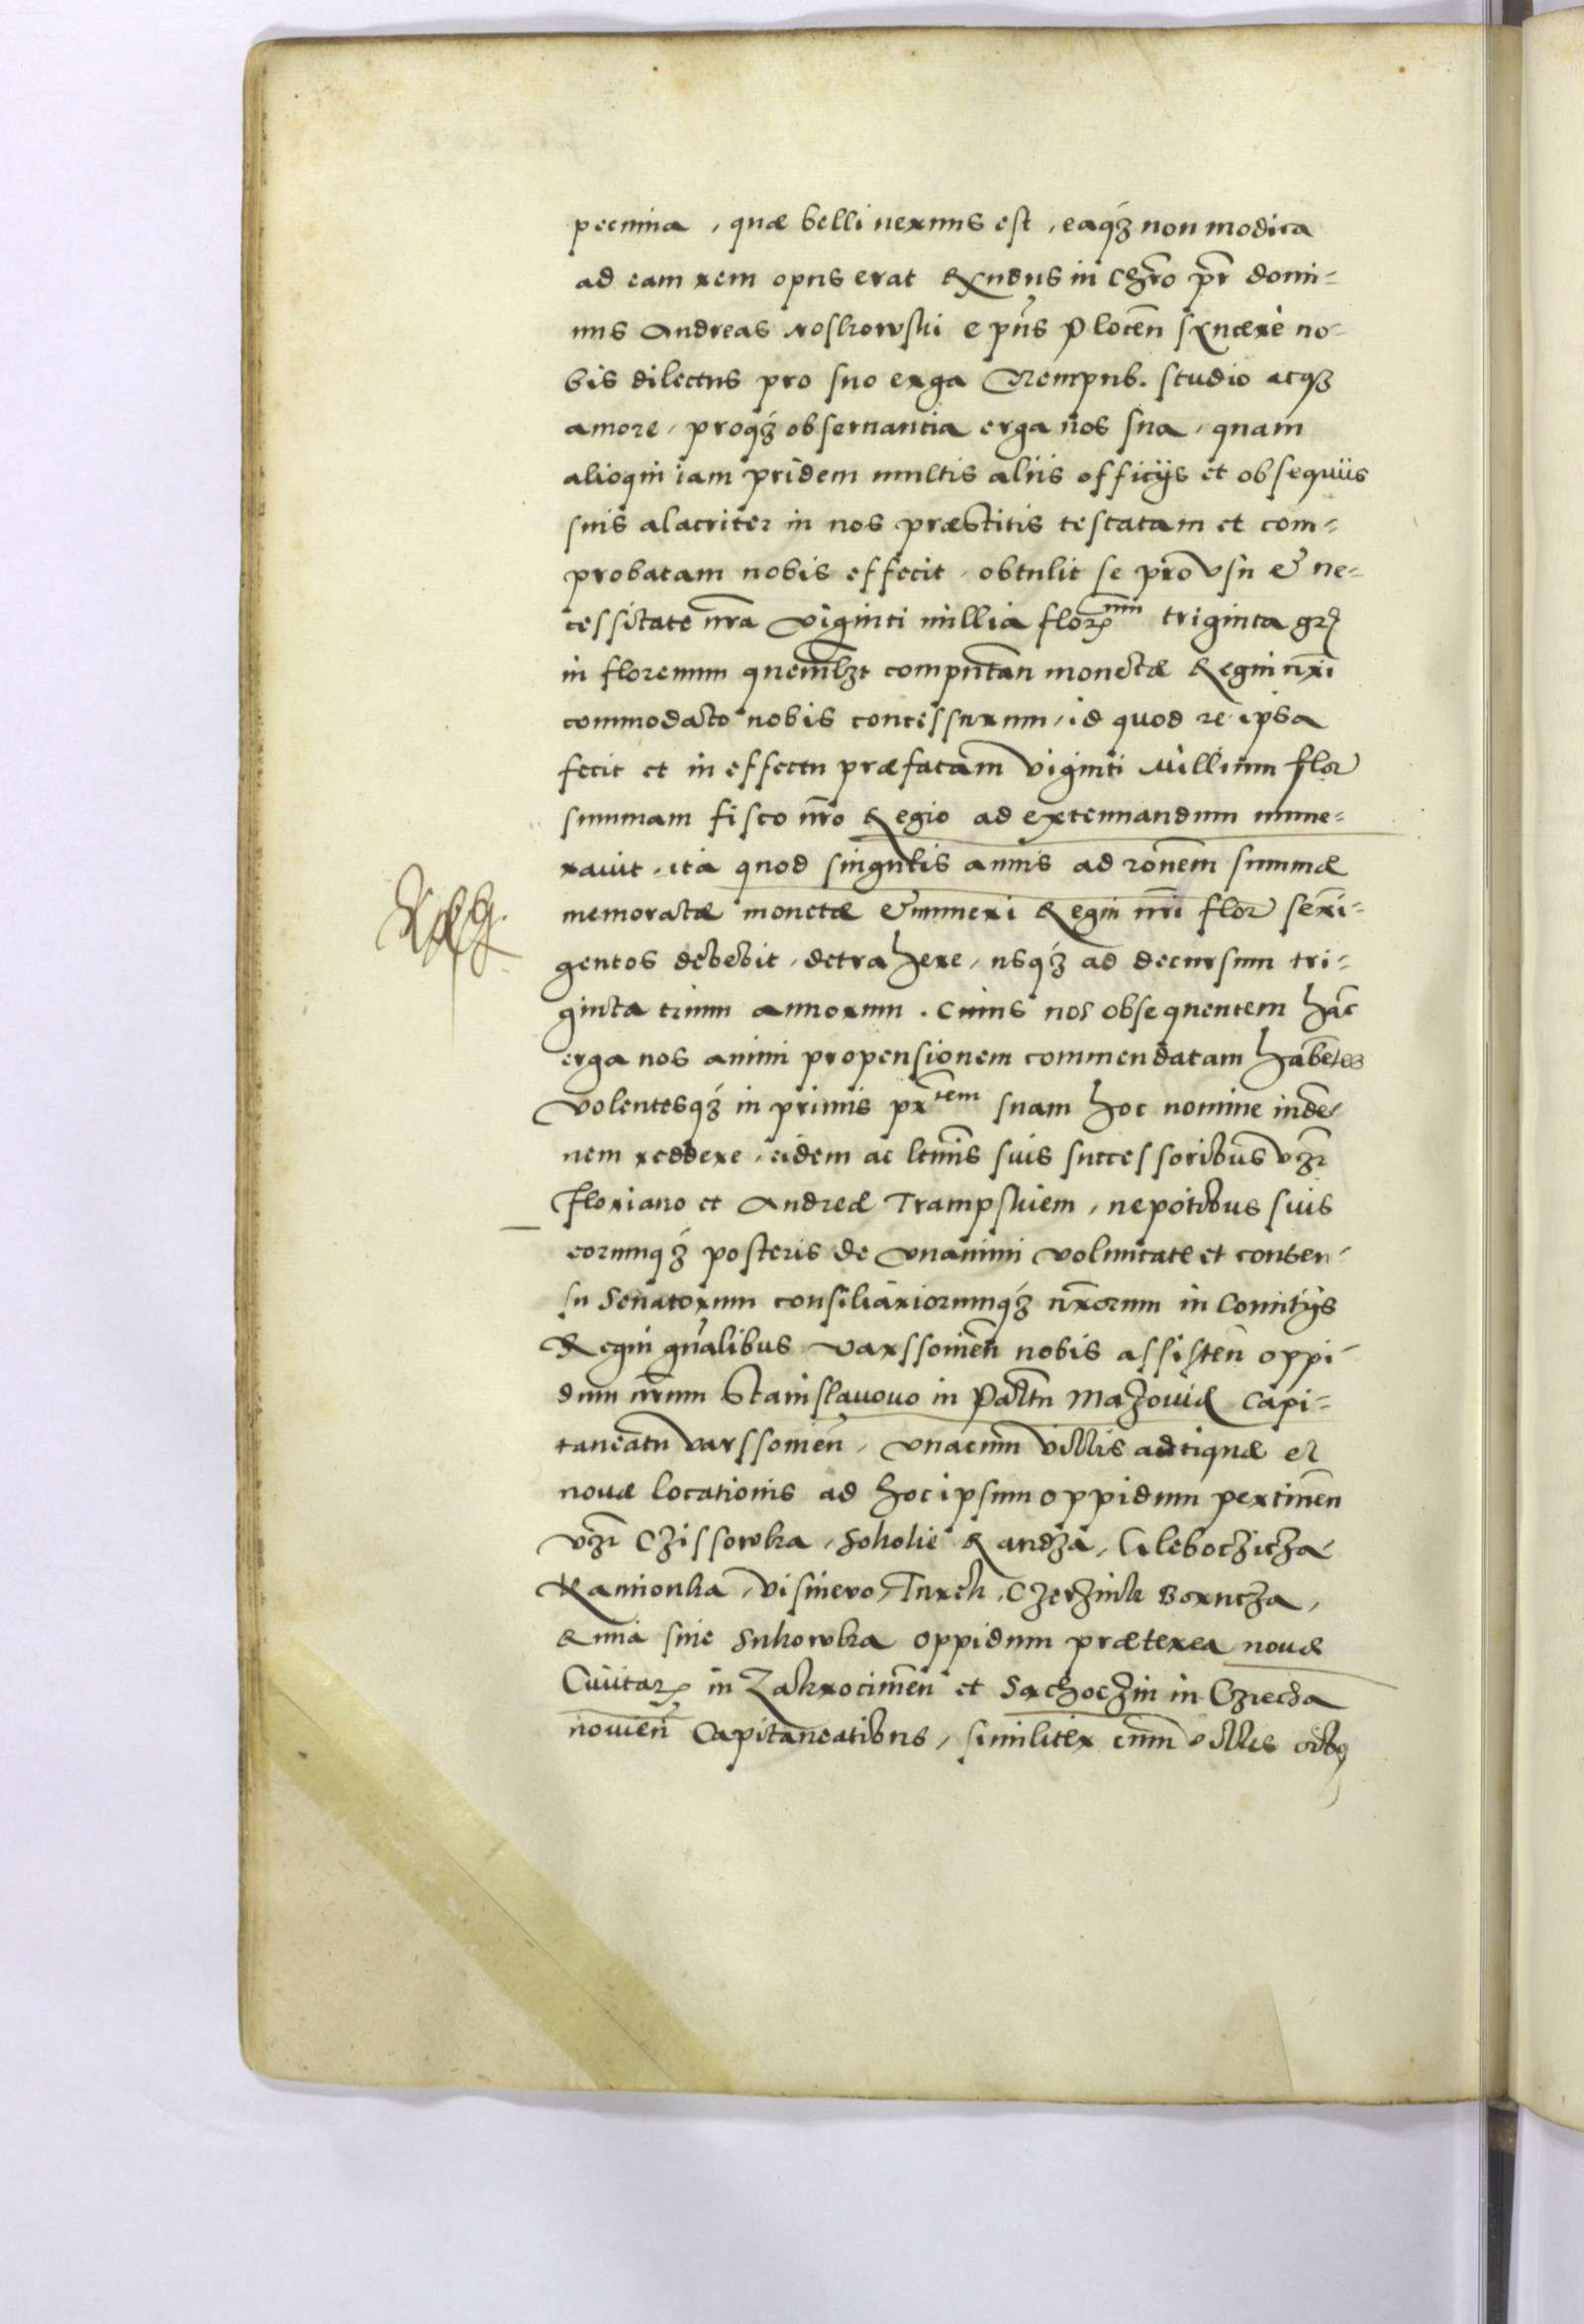 pecunia, quæ belli neruus est, eaq₃ non modica
ad eam rem opus erat Rx̄ndus in Chr̄o p̄r domi=
nus Andreas noskowski ep̄us Plocen̄ sÿncere no-
bis dilectus pro suo erga Rempub. studio atq₃
amore, proq₃ obseruantia erga nos sua, quam
alioqui iam pridem multis aliis officÿs et obsequiis
suis alacriter in nos præstitis testatam et com=
probatam nobis effecit, obtulit se pro vsu & ne=
cessitate nr̄a viginti millia florꝝ triginta grꝭ
in florenum quemlꝫt computan̄ monetæ Regni nr̄i
commodato nobis concessurum, id quod re ipsa
fecit et in effectu præfatam viginti Millium flor
summam fisco nr̄o Regio ad extenuandum nume=
rauit, ita quod singulis annis ad ron̄em summæ
memoratæ monetæ & numeri Regni nr̄i flor sexi=
gentos debebit, detrahere, usq₃ ad decursum tri=
ginta trium annorum. Cuius nos obsequentem hāc
erga nos animi propensionem commendatam habētes
volentesq₃ in primis pr̄tem suam hoc nomine indē
nem reddere, eidem ac ltīmis suis successoribus vꝫ
Floriano et Andreæ Trampskiem, nepotibus suis
eorumq₃ posteris de vnanimi voluntate et consen=
su Senatorum consiliariorumq₃ nr̄orum in Comitÿs
Regni gn̄alibus varssouien̄ nobis assisten̄ oppi=
dum nr̄um Stanislauouo in Paltu Mazouiæ Capi=
taneatu varssouien̄, vnacum villis antiquæ et
nouæ locationis ad hoc ipsum oppidum pertinen̄
vꝫ Czissowka, Sokolie Randza, Gleboczicza
Kamionka, visniewo, Turek, Czerzink Borucza,
Runia siue Sukowka oppidum præterea nouæ
Ciuitatꝭ in Zakrocimen̄ et Sochoczin in Cziecha
nouien̄ Capitaneatibus, similiter cum villis oībꝰ